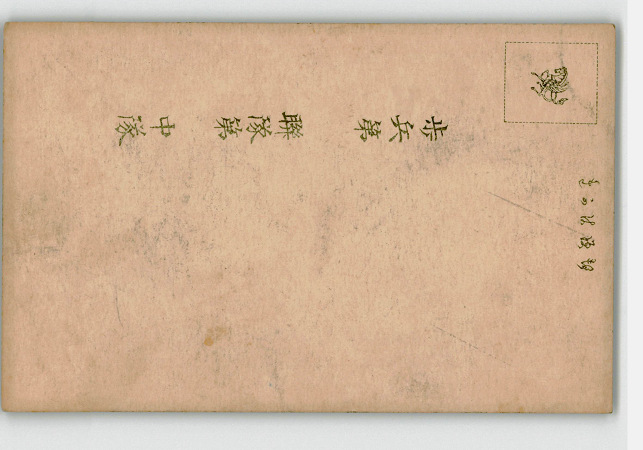 郵便はかき
歩兵第　聯隊第　中隊